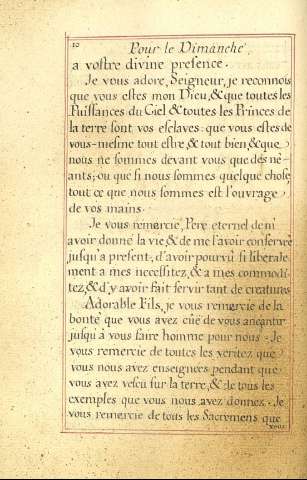 10
Pour le Dimanche
a vostre divine presence.
Je vous adore, Seigneur, je reconnois
que vous estes mon Dieu, & que toutes les
Puissances du Ciel & toutes les Princes de
la terre sont vos esclaves: que vous estes de
vous-mesme tout estre, & tout bien, & que
nous ne sommes devant vous que des né-
ants; ou que si nous sommes quelque chose,
tout ce que nous sommes est l'ouvrage
de vos mains.
Je vous remercie, Pere eternel de m'
avoir donné la vie, & de me l'avoir conservée
jusqu'a present, d'avoir pourvû si liberale-
ment a mes necessitez, & a mes commodi-
tez, & d'y avoir fait servir tant de creatures
Adorable Fils, je vous remercie de la
bonté que vous avez eüe de vous aneantir
jusqu'à vous faire homme pour nous. Je
vous remercie de toutes les veritez que
vous nous avez enseignées pendant que
vous avez vescu sur la terre, & de tous les
exemples que vous nous avez donnez. Je
vous remercie de tous les Sacremens que
vous